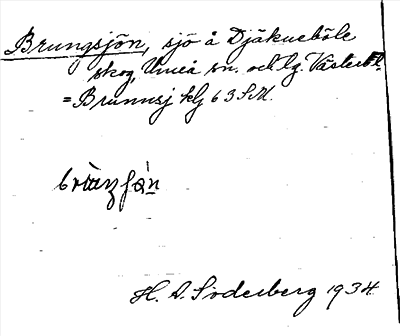 Brungsjön, sjö å Djäkneböle
skog, Umeå sn. och lg. Västerb. l.
= Brunnsj klj 63 S.M.
H. D. Söderberg 1934